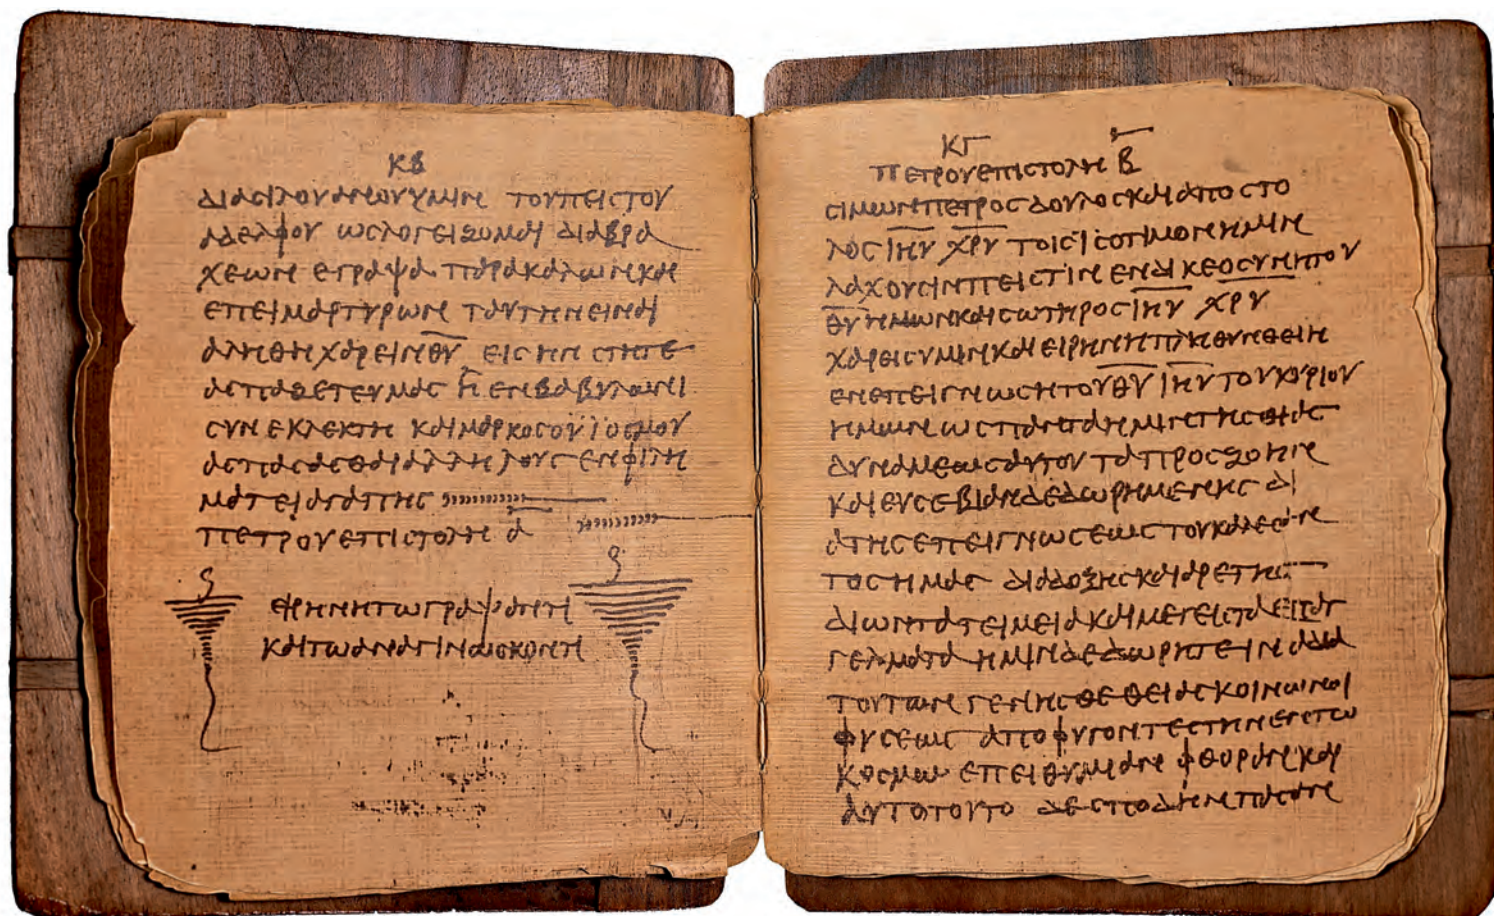 ΚΒ
ΔΙΑϹΙΛΟΥΑΝΟΥΥΜΙΝ ΤΟΥΠΕΙϹΤΟΥ
ΑΔΕΛΦΟΥ ΩϹΛΟΓΕΙΖΟΜΑΙ ΔΙΑΒΡΑ
ΧΕΩΝ ΕΓΡΑΨΑ ΠΑΡΑΚΑΛΩΝΚΑΙ
ΕΠΕΙΜΑΡΤΥΡΩΝ ΤΑΥΤΗΝΕΙΝΑΙ
ΑΛΗΘΗΧΑΡΕΙΝΘ̅Υ̅ ΕΙϹΗΝϹΤΗΤΕ
ΑϹΠΑΖΕΤΕΥΜΑϹ Η ΕΝΒΑΒΥΛΩΝΙ
ϹΥΝΕΚΛΕΚΤΗ ΚΑΙΜΑΡΚΟϹΟΥΙΟϹΜΟΥ
ΑϹΠΑϹΑϹΘΑΙΑΛΛΗΛΟΥϹ ΕΝΦΙΛΗ
ΜΑΤΕΙΑΓΑΠΗϹ
ΠΕΤΡΟΥΕΠΙϹΤΟΛΗ Α̅
ΕΙΡΗΝΗΤΩΓΡΑΨΑΝΤΙ
ΚΑΙΤΩΑΝΑΓΙΝΩϹΚΟΝΤΙ
ΚΓ
ΠΕΤΡΟΥΕΠΙϹΤΟΛΗ Β̅
ϹΙΜΩΝΠΕΤΡΟϹΔΟΥΛΟϹΚΑΙΑΠΟϹΤΟ
ΛΟϹΙ̅Η̅Υ̅ Χ̅Ρ̅Υ̅ ΤΟΙϹΙϹΟΤΙΜΟΝΗΜΙΝ
ΛΑΧΟΥϹΙΝΠΕΙϹΤΙΝΕΝΔΙΚΕΟϹΥΝΗΤΟΥ
Θ̅Υ̅ΗΜΩΝΚΑΙϹΩΤΗΡΟϹΙ̅Η̅Υ̅ Χ̅Ρ̅Υ̅
ΧΑΡΕΙϹΥΜΙΝΚΑΙΕΙΡΗΝΗΠΛΗΘΥΝΘΕΙΗ
ΕΝΕΠΕΙΓΝΩϹΗΤΟΥΘ̅Υ̅Ι̅Η̅Υ̅ΤΟΥΚΥΡΙΟΥ
ΗΜΩΝ ΩϹΠΑΝΤΑΗΜΙΝΤΗϹΘΙΑϹ
ΔΥΝΑΜΕΩϹΑΥΤΟΥ ΤΑΠΡΟϹΖΟΗΝ
ΚΑΙΕΥϹΕΒΙΑΝΔΕΔΩΡΗΜΕΝΗϹ ΔΙ
ΑΤΗϹΕΠΕΙΓΝΩϹΕΩϹΤΟΥΚΑΛΕϹΑΝ
ΤΟϹΗΜΑϹ ΔΙΑΔΟΞΗϹΚΑΙΑΡΕΤΗϹ
ΔΙΩΝΤΑΤΕΙΜΕΙΑΚΑΙΜΕΓΕΙϹΤΑΕΠΑΓ
ΓΕΛΜΑΤΑ ΗΜΙΝΔΕΔΩΡΗΤΕΙΝΑΔΙΑ
ΤΟΥΤΩΝ ΓΕΝΗϹΘΕΘΕΙΑϹΚΟΙΝΩΝΟΙ
ΦΥϹΕΩϹ ΑΠΟΦΥΓΟΝΤΕϹΤΗΝΕΝΤΩ
ΚΟϹΜΩ ΕΠΕΙΘΥΜΙΑΝ ΦΘΟΡΑΝΚΑΙ
ΑΥΤΟΤΟΥΤΟ ΔΕϹΠΟΔΗΝΠΑϹΑΝ